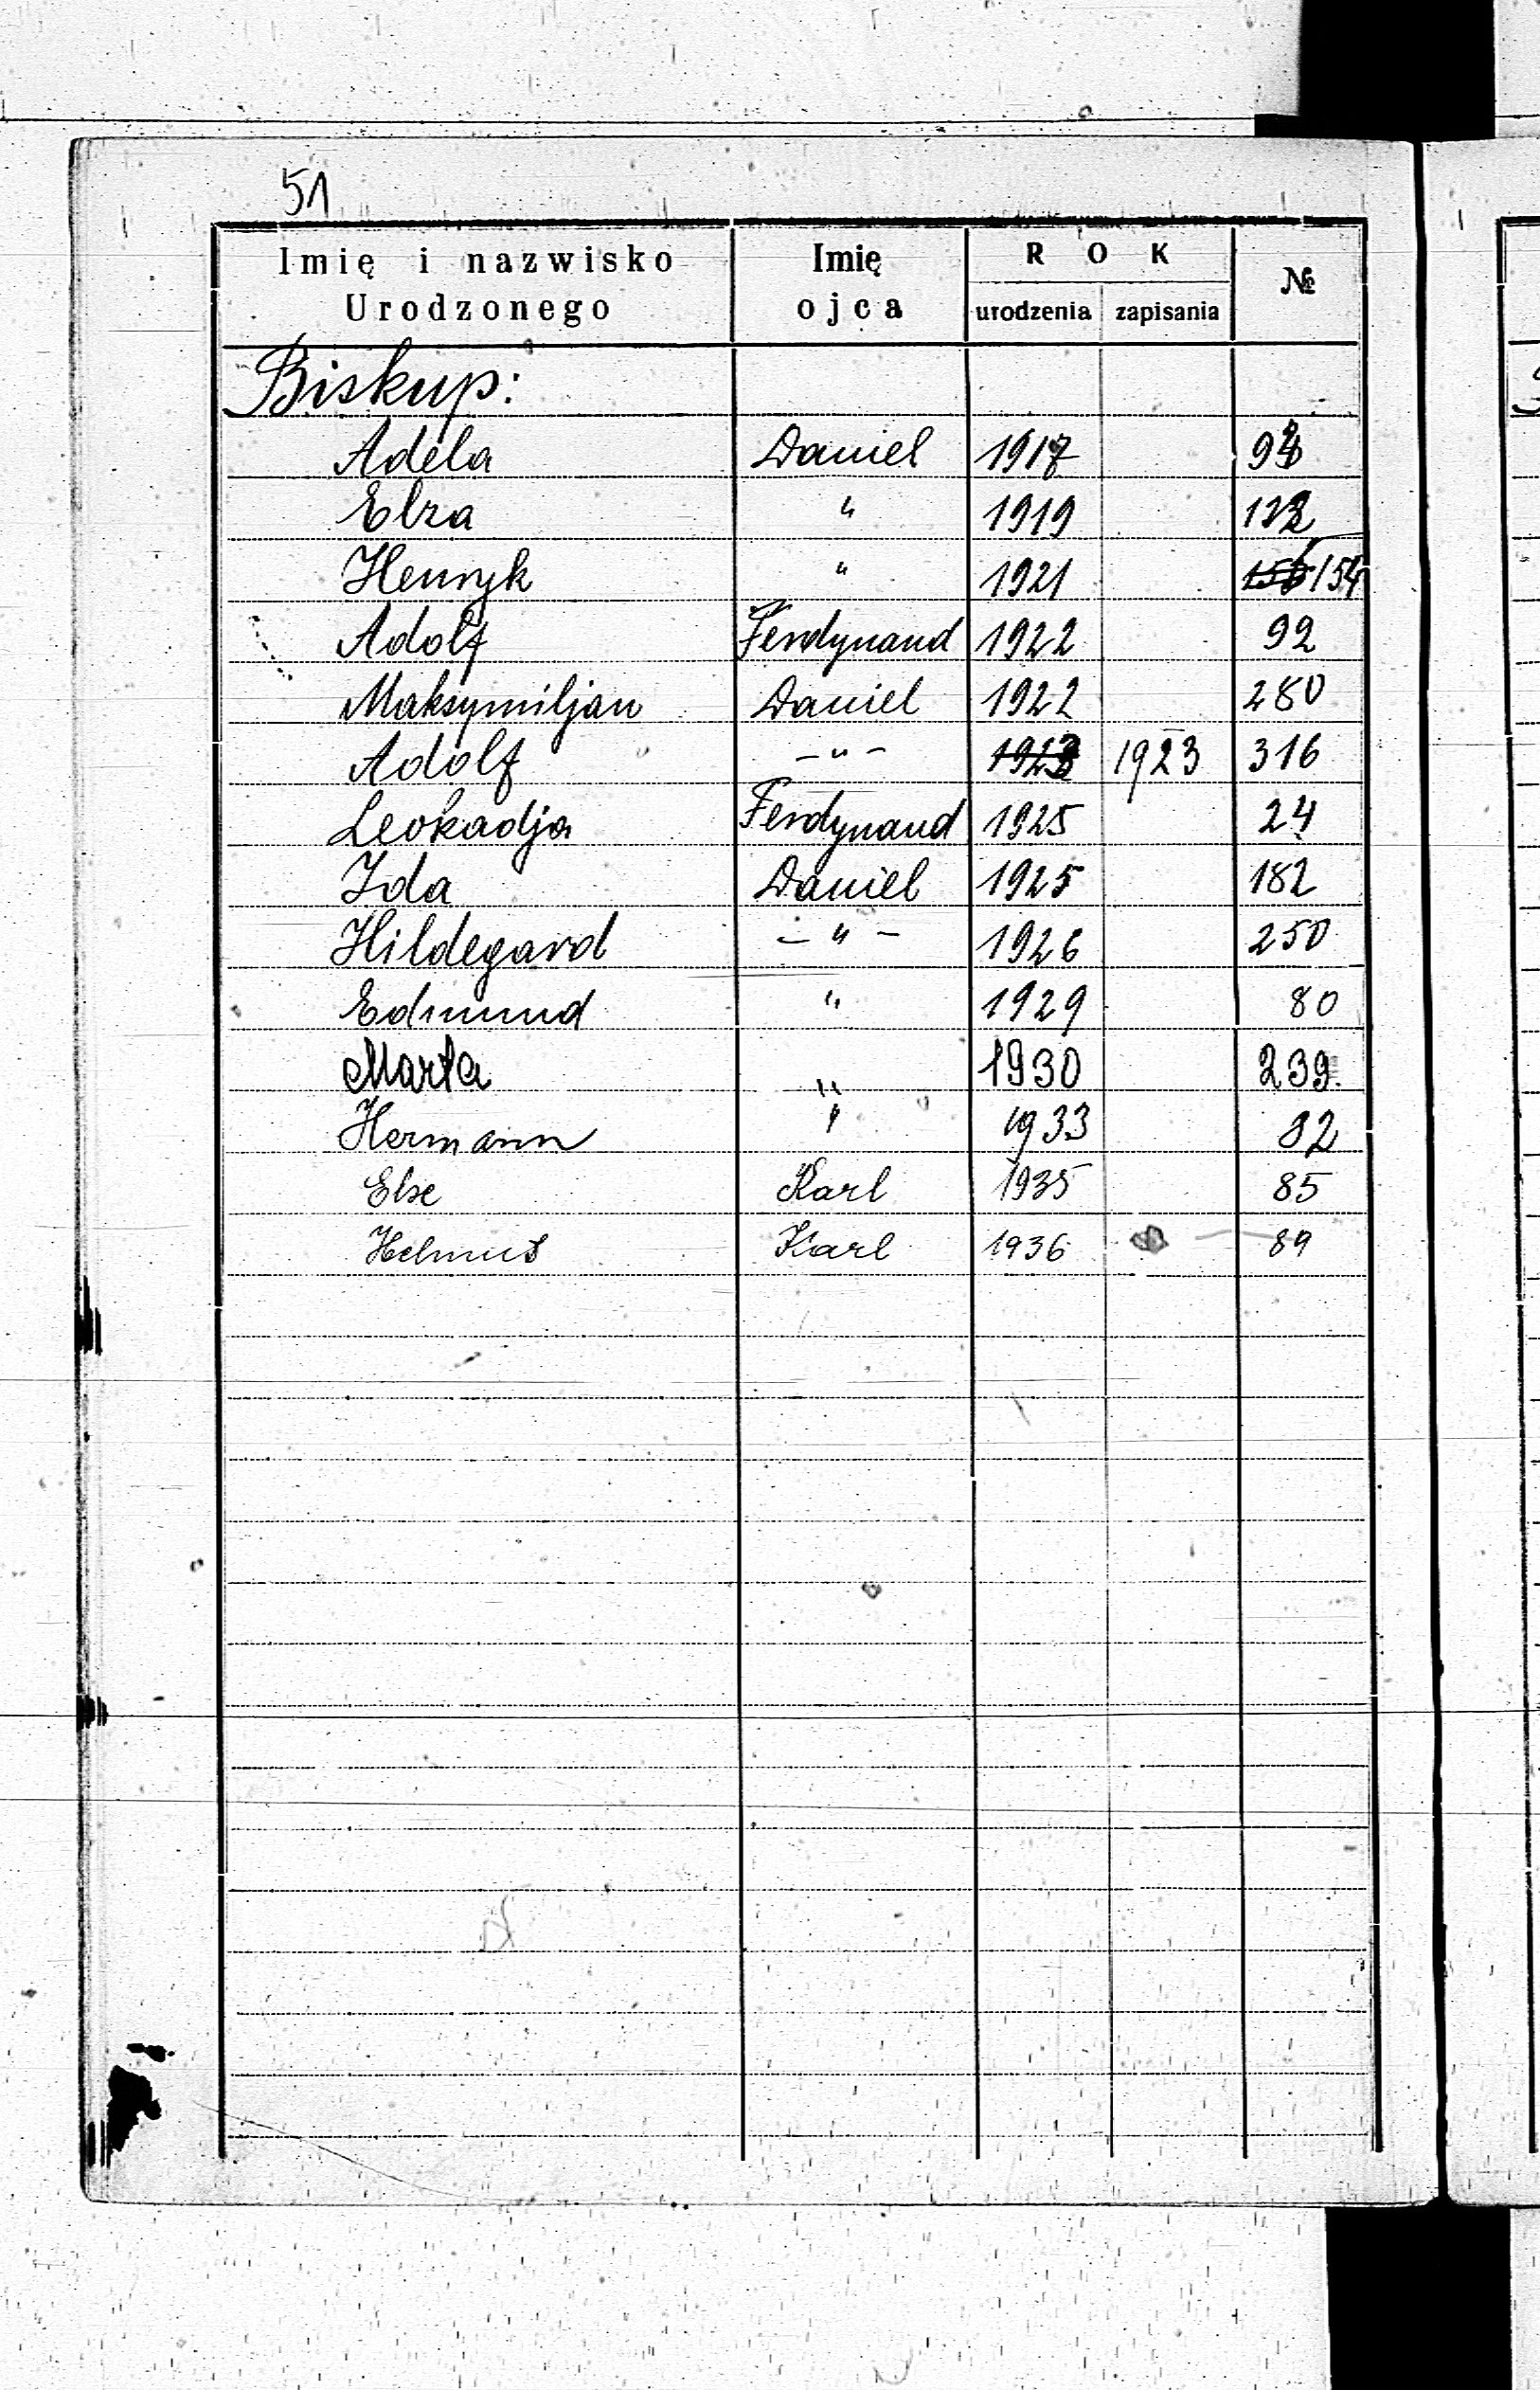 51
Imię i nazwisko Urodzonego Imię ojca ROK urodzenia zapisania №
Biskup:
Adela Daniel 1917
Elza " 1919
Henryk " 1921 154
Adolf Ferdynand 1922 92
Maksymiljan Daniel 1922 280
Adolf -"- 1923 1923 316
Leokadja Ferdynand 1925 24
Ida Daniel 1925 182
Hildegard -"- 1926 250
Edmund " 1929 80
Marta " 1930 239
Hermann " 1933 82
Else Karl 1935 85
Helmut Karl 1936 89